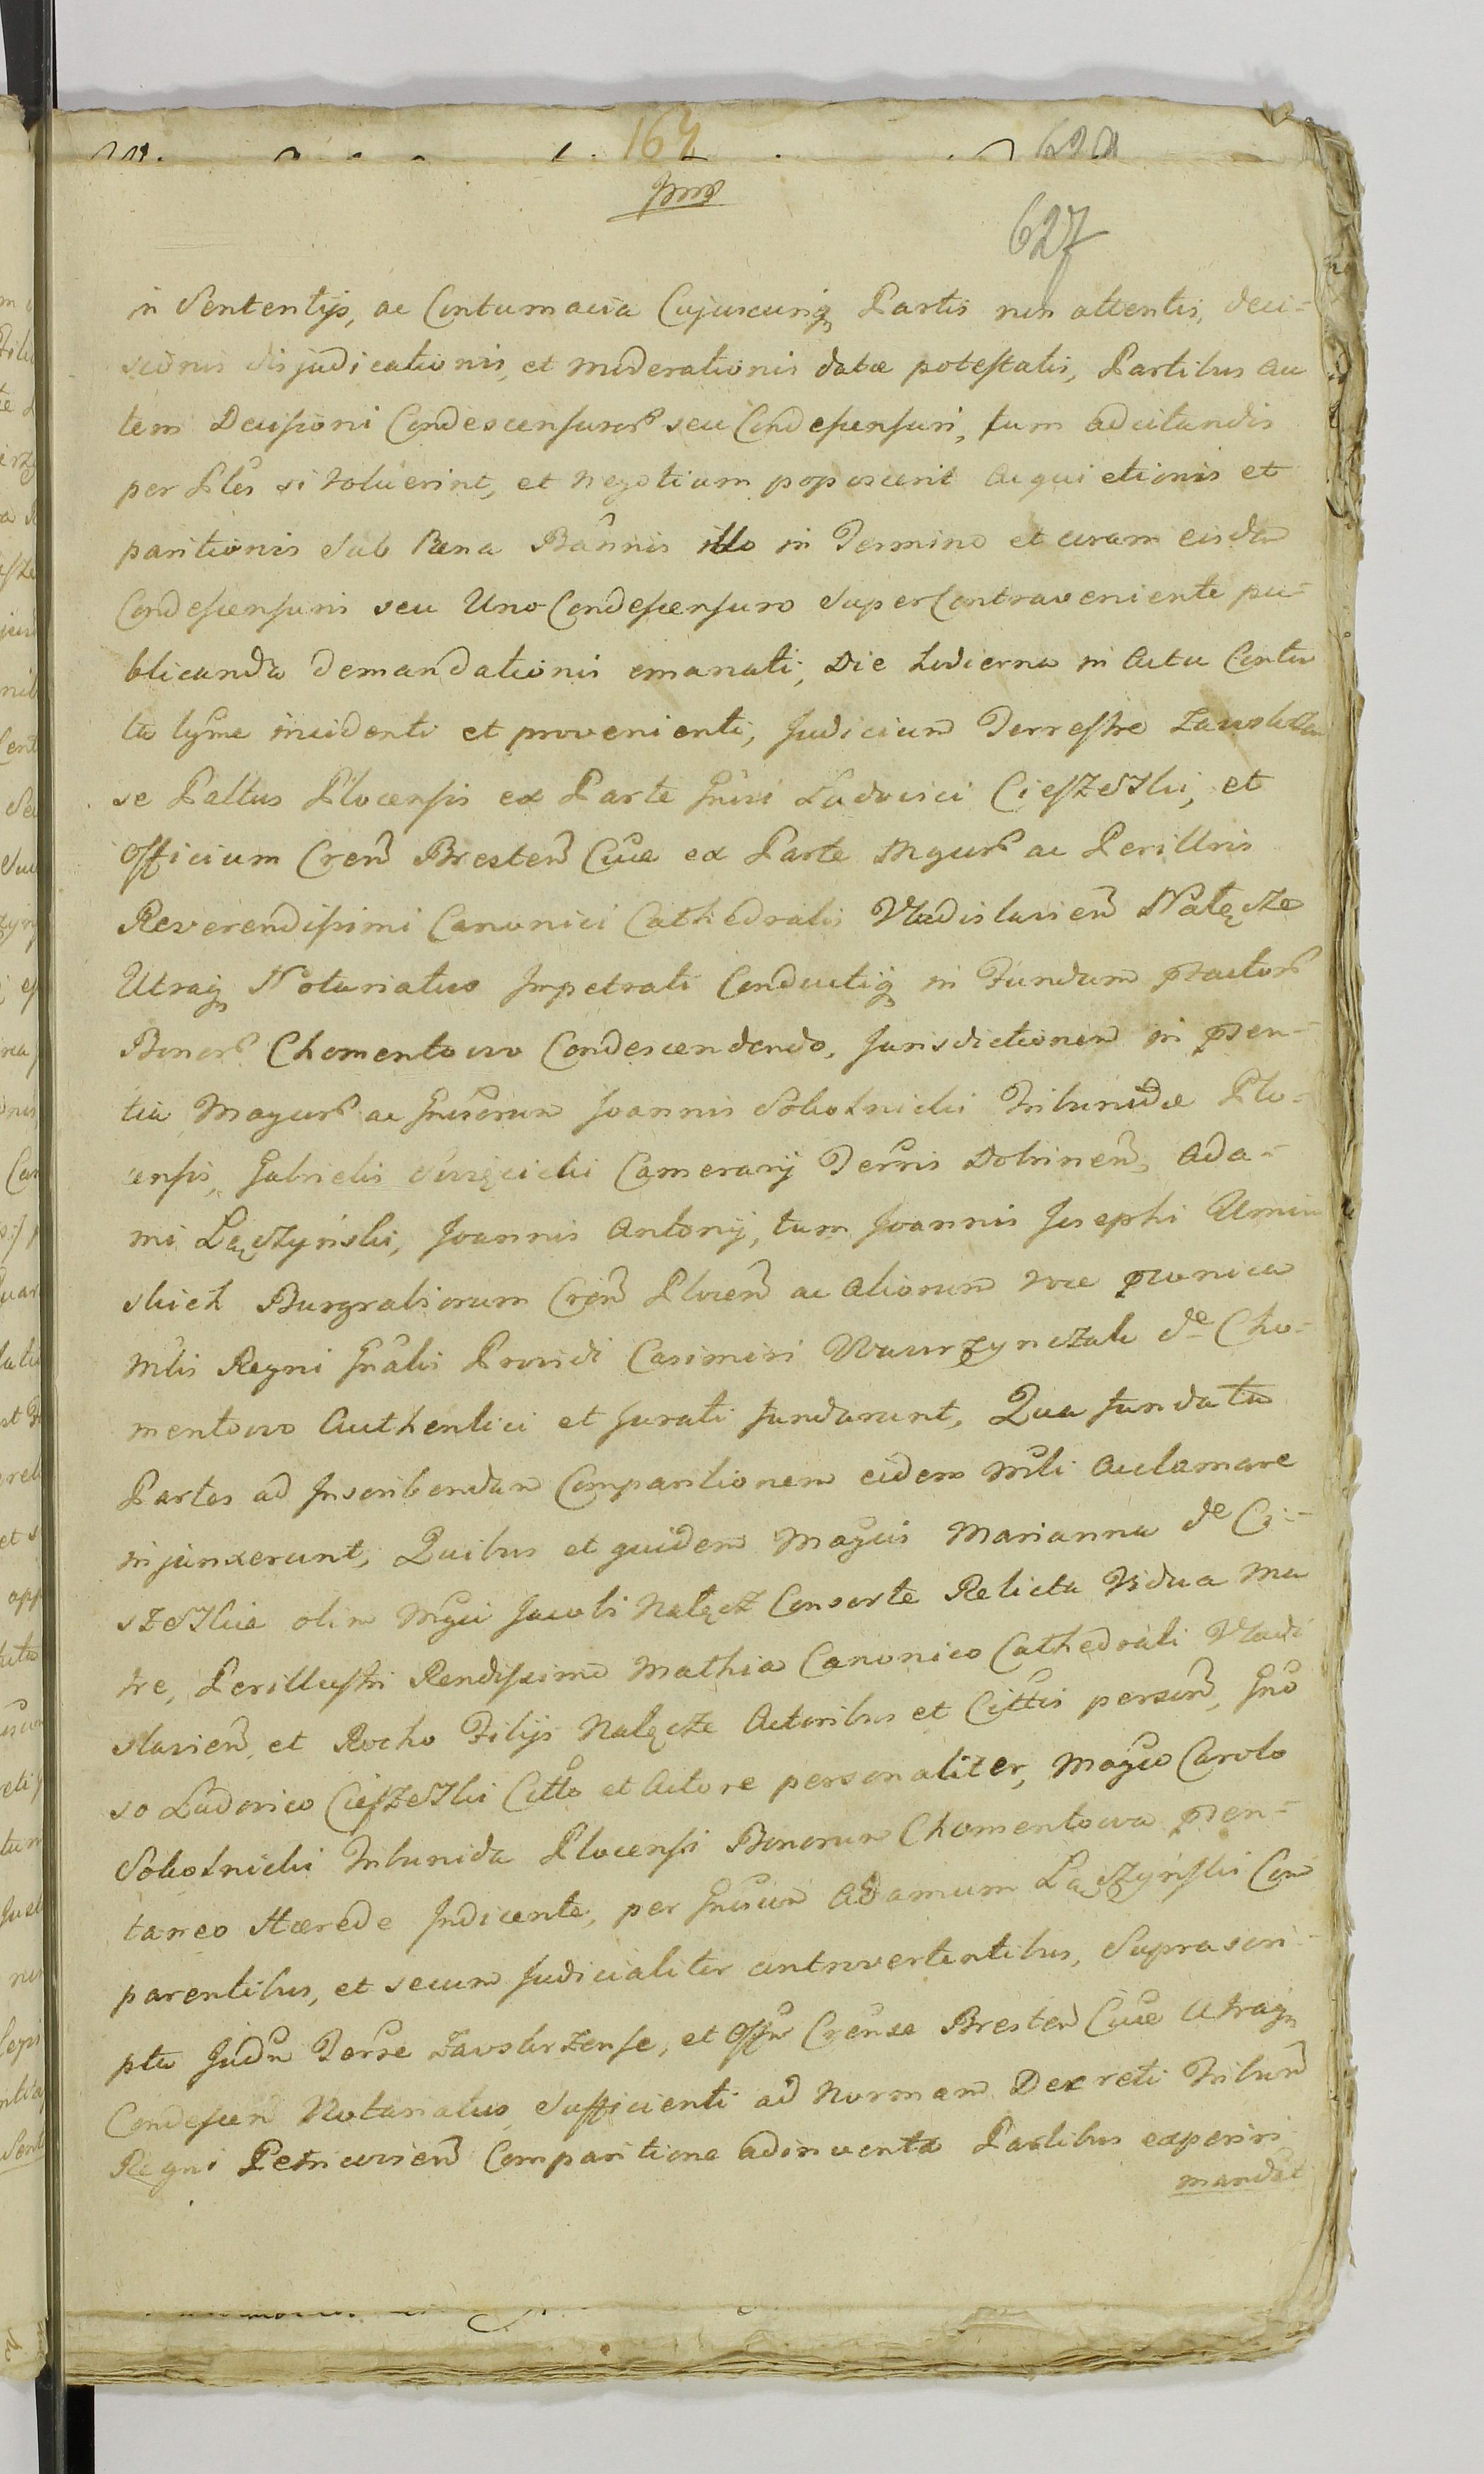 164
627
in Sententijs, ac Contumacia Cujuscunq Partis non attentis, deci-
sionis disjudicationis, et moderationis datæ potestatis, Partibus au
tem Decisioni Condescensuror seu Condescensuri, tum adcitandis
per Ptes si voluerint, et negotium poposcerit acquietionis et
paritionis sub Pæna Bannis illo in Termino et coram eisdem
Condescensuris seu Uno Condescensuro super Contraveniente pu-
blicanda demandationis emanati, Die hodierna in Actu Conten
ta lgme incidenti et provenienti, Judicium Terrestre Zawskrzen
se Paltus Plocensis ex Parte Gnsi Ludovici Cieszeski, et
Officium Cren Bresten Cuiæ ex Parte Mgcor ac Perillris
Reverendissimi Canonici Cathedralis Vladislavien Nałęcze
Utraq Notariatus Impetrati Conductiq in Fundum ptactor
Bonor Chomentowo Condescendendo, Jurisdictionem in pten-
tia Magcor ac Gnsorum Joannis Sokolnicki Tribunidæ Plo-
censis, Gabrielis Camerarij Terris Dobrinen, Ada-
mi Lączyński, Joannis Antonij, tum Joannis Josephi Umin
skich Burgrabiorum Cren Plocen ac aliorum voce
Mtlis Regni Gnalis Providi Casimiri Wawrzynczak de Cho-
mentowo Authentici et Jurati fundarunt, Qua fundata
Partes ad Inscribendam Comparitionem eidem Mtli acclamare
injunxerunt, Quibus et quidem Magcis Marianna de Cie-
szeskie olim Mgci Jacobi Nałęcz Consorte Relicta Vidua Ma
tre, Perillustri Rendissimo Mathia Canonico Cathedrali Vladi
slavien, et Rocho Filijs Nałęcze Actoribus et Cittis person, Gno
so Ludovico Cieszeski Citto et Actore personaliter, Magco Carolo
Sokolnicki Tribunida Plocensi Bonorum Chomentowa pten-
taneo Hærede Indicente, per Gnsum Adamum Lączyński Com
parentibus, et secum Judicialiter controvertentibus, Suprascri-
ptu Judm Terre Zawskrzense, et Offm Crense Bresten Cuiæ Utraq
Condescen Notariatus sufficienti ad Normam Decreti Tribun
Regni Petricovien Comparitione adinventa Partibus experiri
mandat